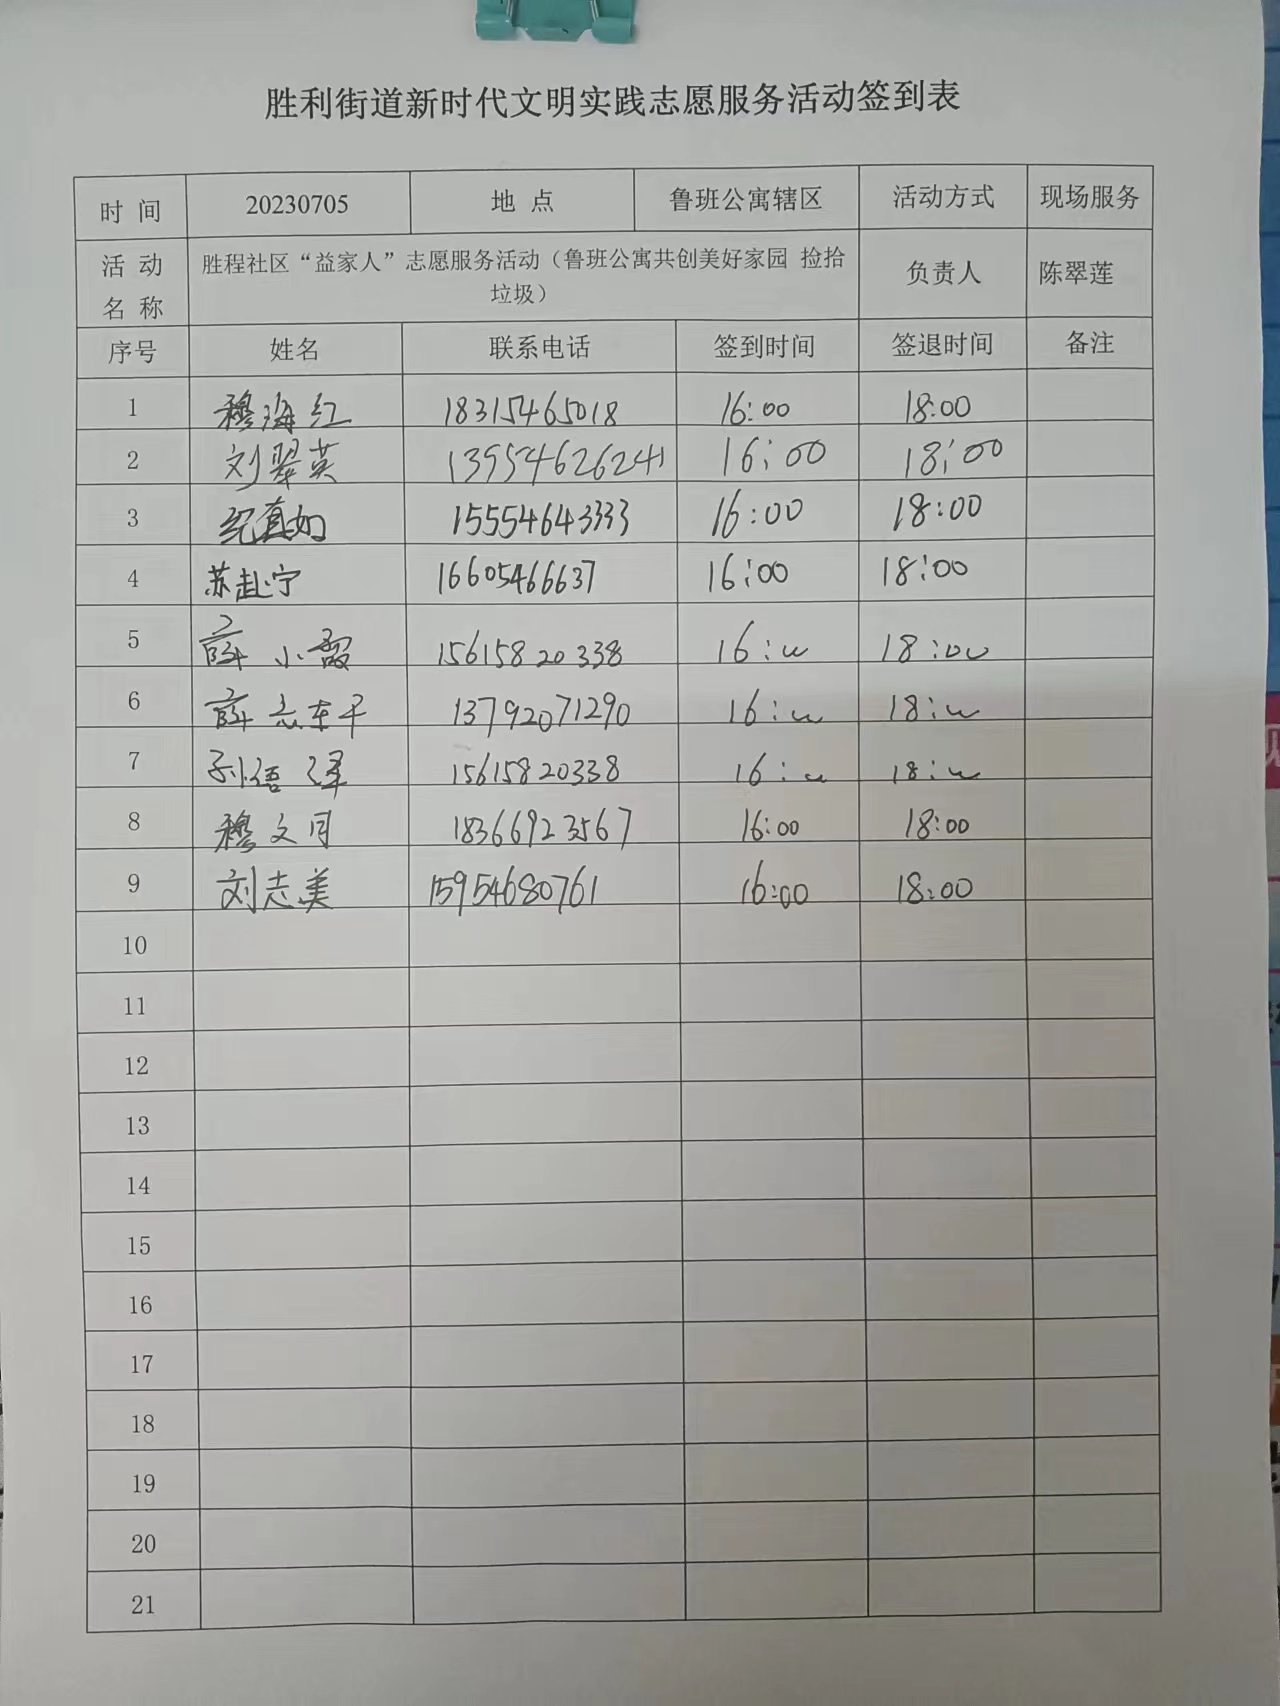 胜利街道新时代文明实践志愿服务活动签到表
时 间 20230705 地 点 鲁班公寓辖区 活动方式 现场服务
活 动 名 称 胜程社区“益家人”志愿服务活动（鲁班公寓共创美好家园 捡拾垃圾） 负责人 陈翠莲
序号 姓名 联系电话 签到时间 签退时间 备注
1 穆海红 18315465018 16:00 18:00
2 刘翠英 13954626241 16:00 18:00
3 纪真如 15554643333 16:00 18:00
4 苏赴宁 16605466637 16:00 18:00
5 薛小霞 15615820338 16:00 18:00
6 薛 13792071290 16:00 18:00
7 孙语泽 15615820338 16:00 18:00
8 穆文月 18366923567 16:00 18:00
9 刘志美 15954680761 16:00 18:00
10
11
12
13
14
15
16
17
18
19
20
21